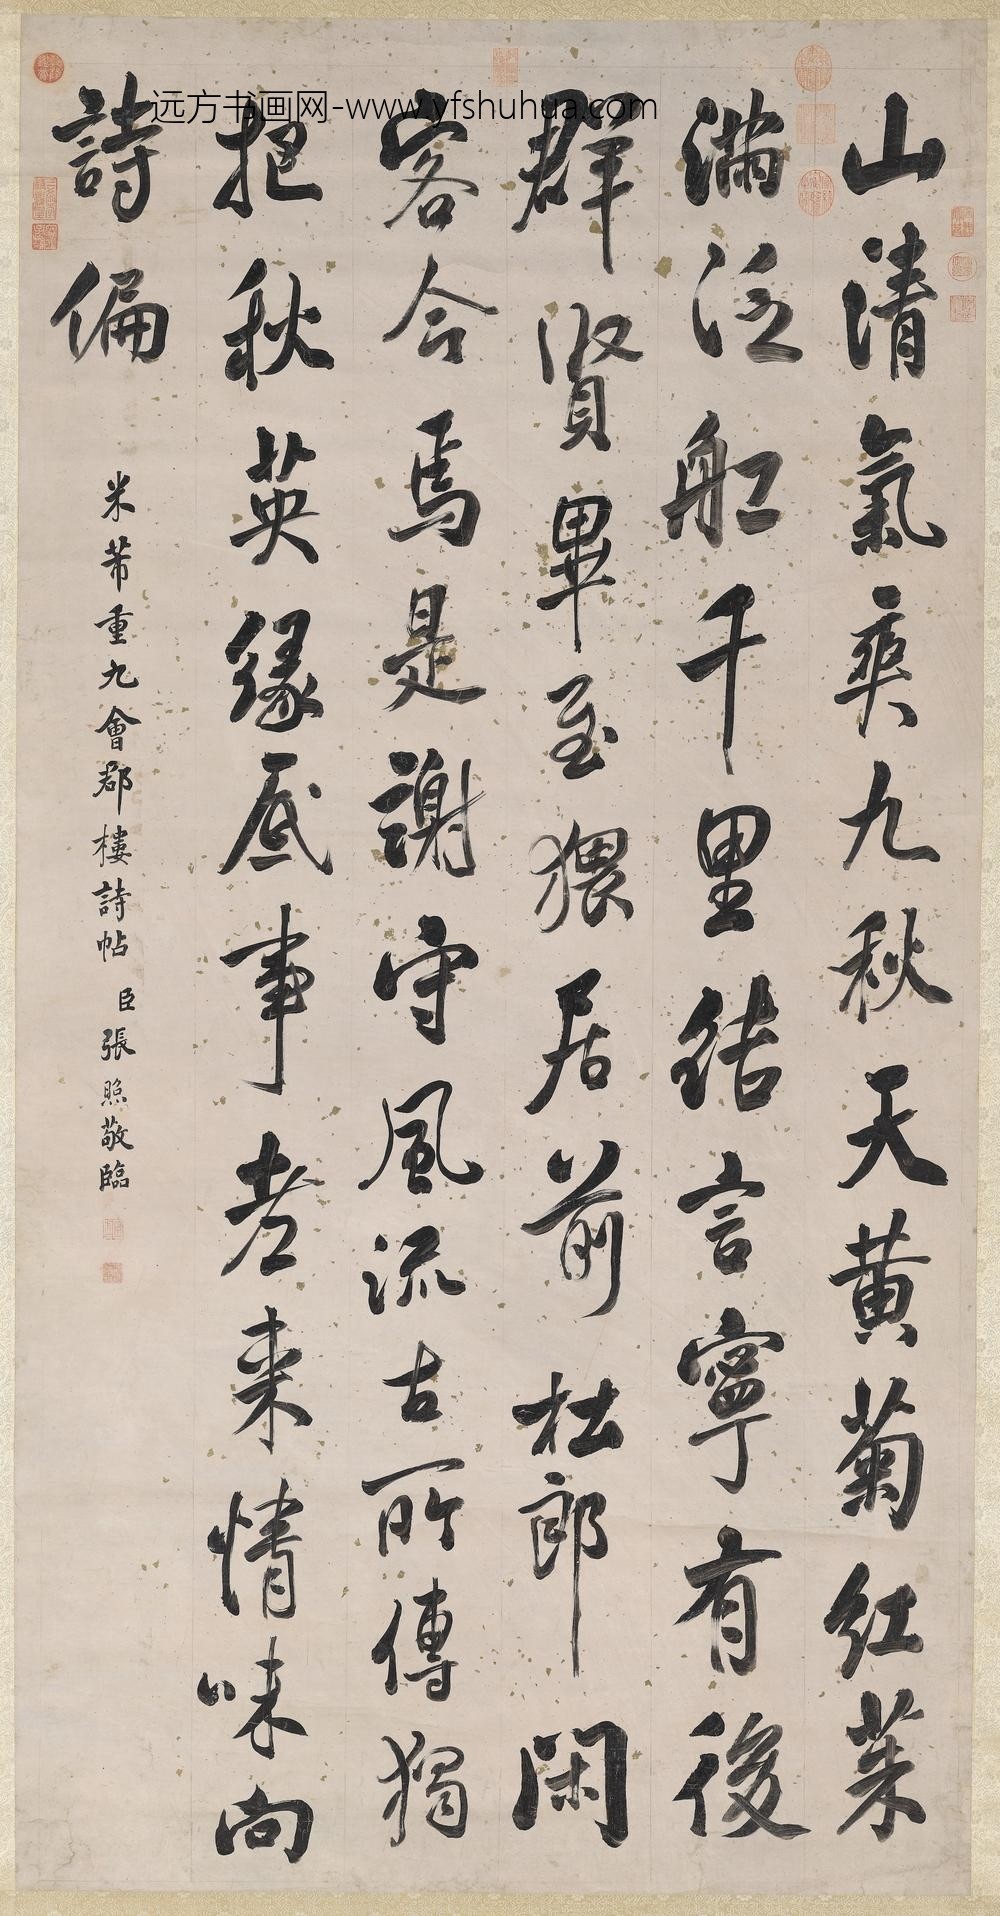 远方书画网-www.yfshuhua.com
山清氣爽九秋天黄菊红茱
满泛船千里结言寧有後
群賢畢至猥居前杜郎闲
客今焉是謝守風流古所傳獨
把秋英緣底事老来情味向
詩偏
米芾重九會郡樓詩帖 臣張照敬臨